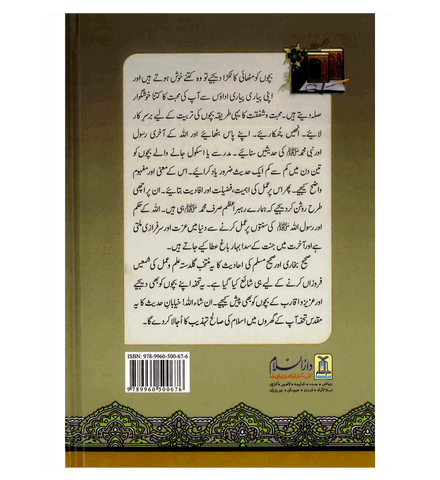 بچوں کو مٹھائی کا ٹکڑا دیجیے تو وہ کتنے خوش ہوتے ہیں اور
اپنی پیاری پیاری اداؤں سے آپ کی محبت کا کتنا خوشگوار
صلہ دیتے ہیں۔ محبت و شفقت کا یہی طریقہ بچوں کی تربیت کے لیے بروئے کار
لائیے۔ انھیں چمکارئیے۔ اپنے پاس بٹھائیے اور اللہ کے آخری رسول
اور نبی محمد ﷺ کی حدیثیں سنائیے۔ مدرسے یا اسکول جانے والے بچوں کو
تین دن میں کم سے کم ایک حدیث ضرور یاد کروائیے۔ اس کے معنی اور مفہوم
واضح کیجیے۔ پھر اس پر عمل کی اہمیت، فضیلت اور افادیت بتائیے۔ ان پر اچھی
طرح روشن کر دیجیے کہ ہمارے رہبر اعظم صرف محمد ﷺ ہی ہیں۔ اللہ کے حکم
اور رسول اللہ ﷺ کی سنتوں پر عمل کرنے سے دنیا میں عزت اور سرفرازی ملتی
ہے اور آخرت میں جنت کے سدا بہار باغ عطا کیے جاتے ہیں۔
صحیح بخاری اور صحیح مسلم کی احادیث کا یہ منتخب گلدستہ علم و عمل کی شمعیں
فروزاں کرنے کے لیے ہی شائع کیا گیا ہے۔ یہ تحفہ اپنے بچوں کو بھی دیجیے
اور عزیز و اقارب کے بچوں کو بھی پیش کیجیے۔ ان شاء اللہ! خیابانِ حدیث کا یہ
مقدس تحفہ آپ کے گھروں میں اسلام کی صالح تہذیب کا اُجالا کر دے گا۔
ISBN: 978-9960-500-67-6
9 789960 500676
دارالسلام